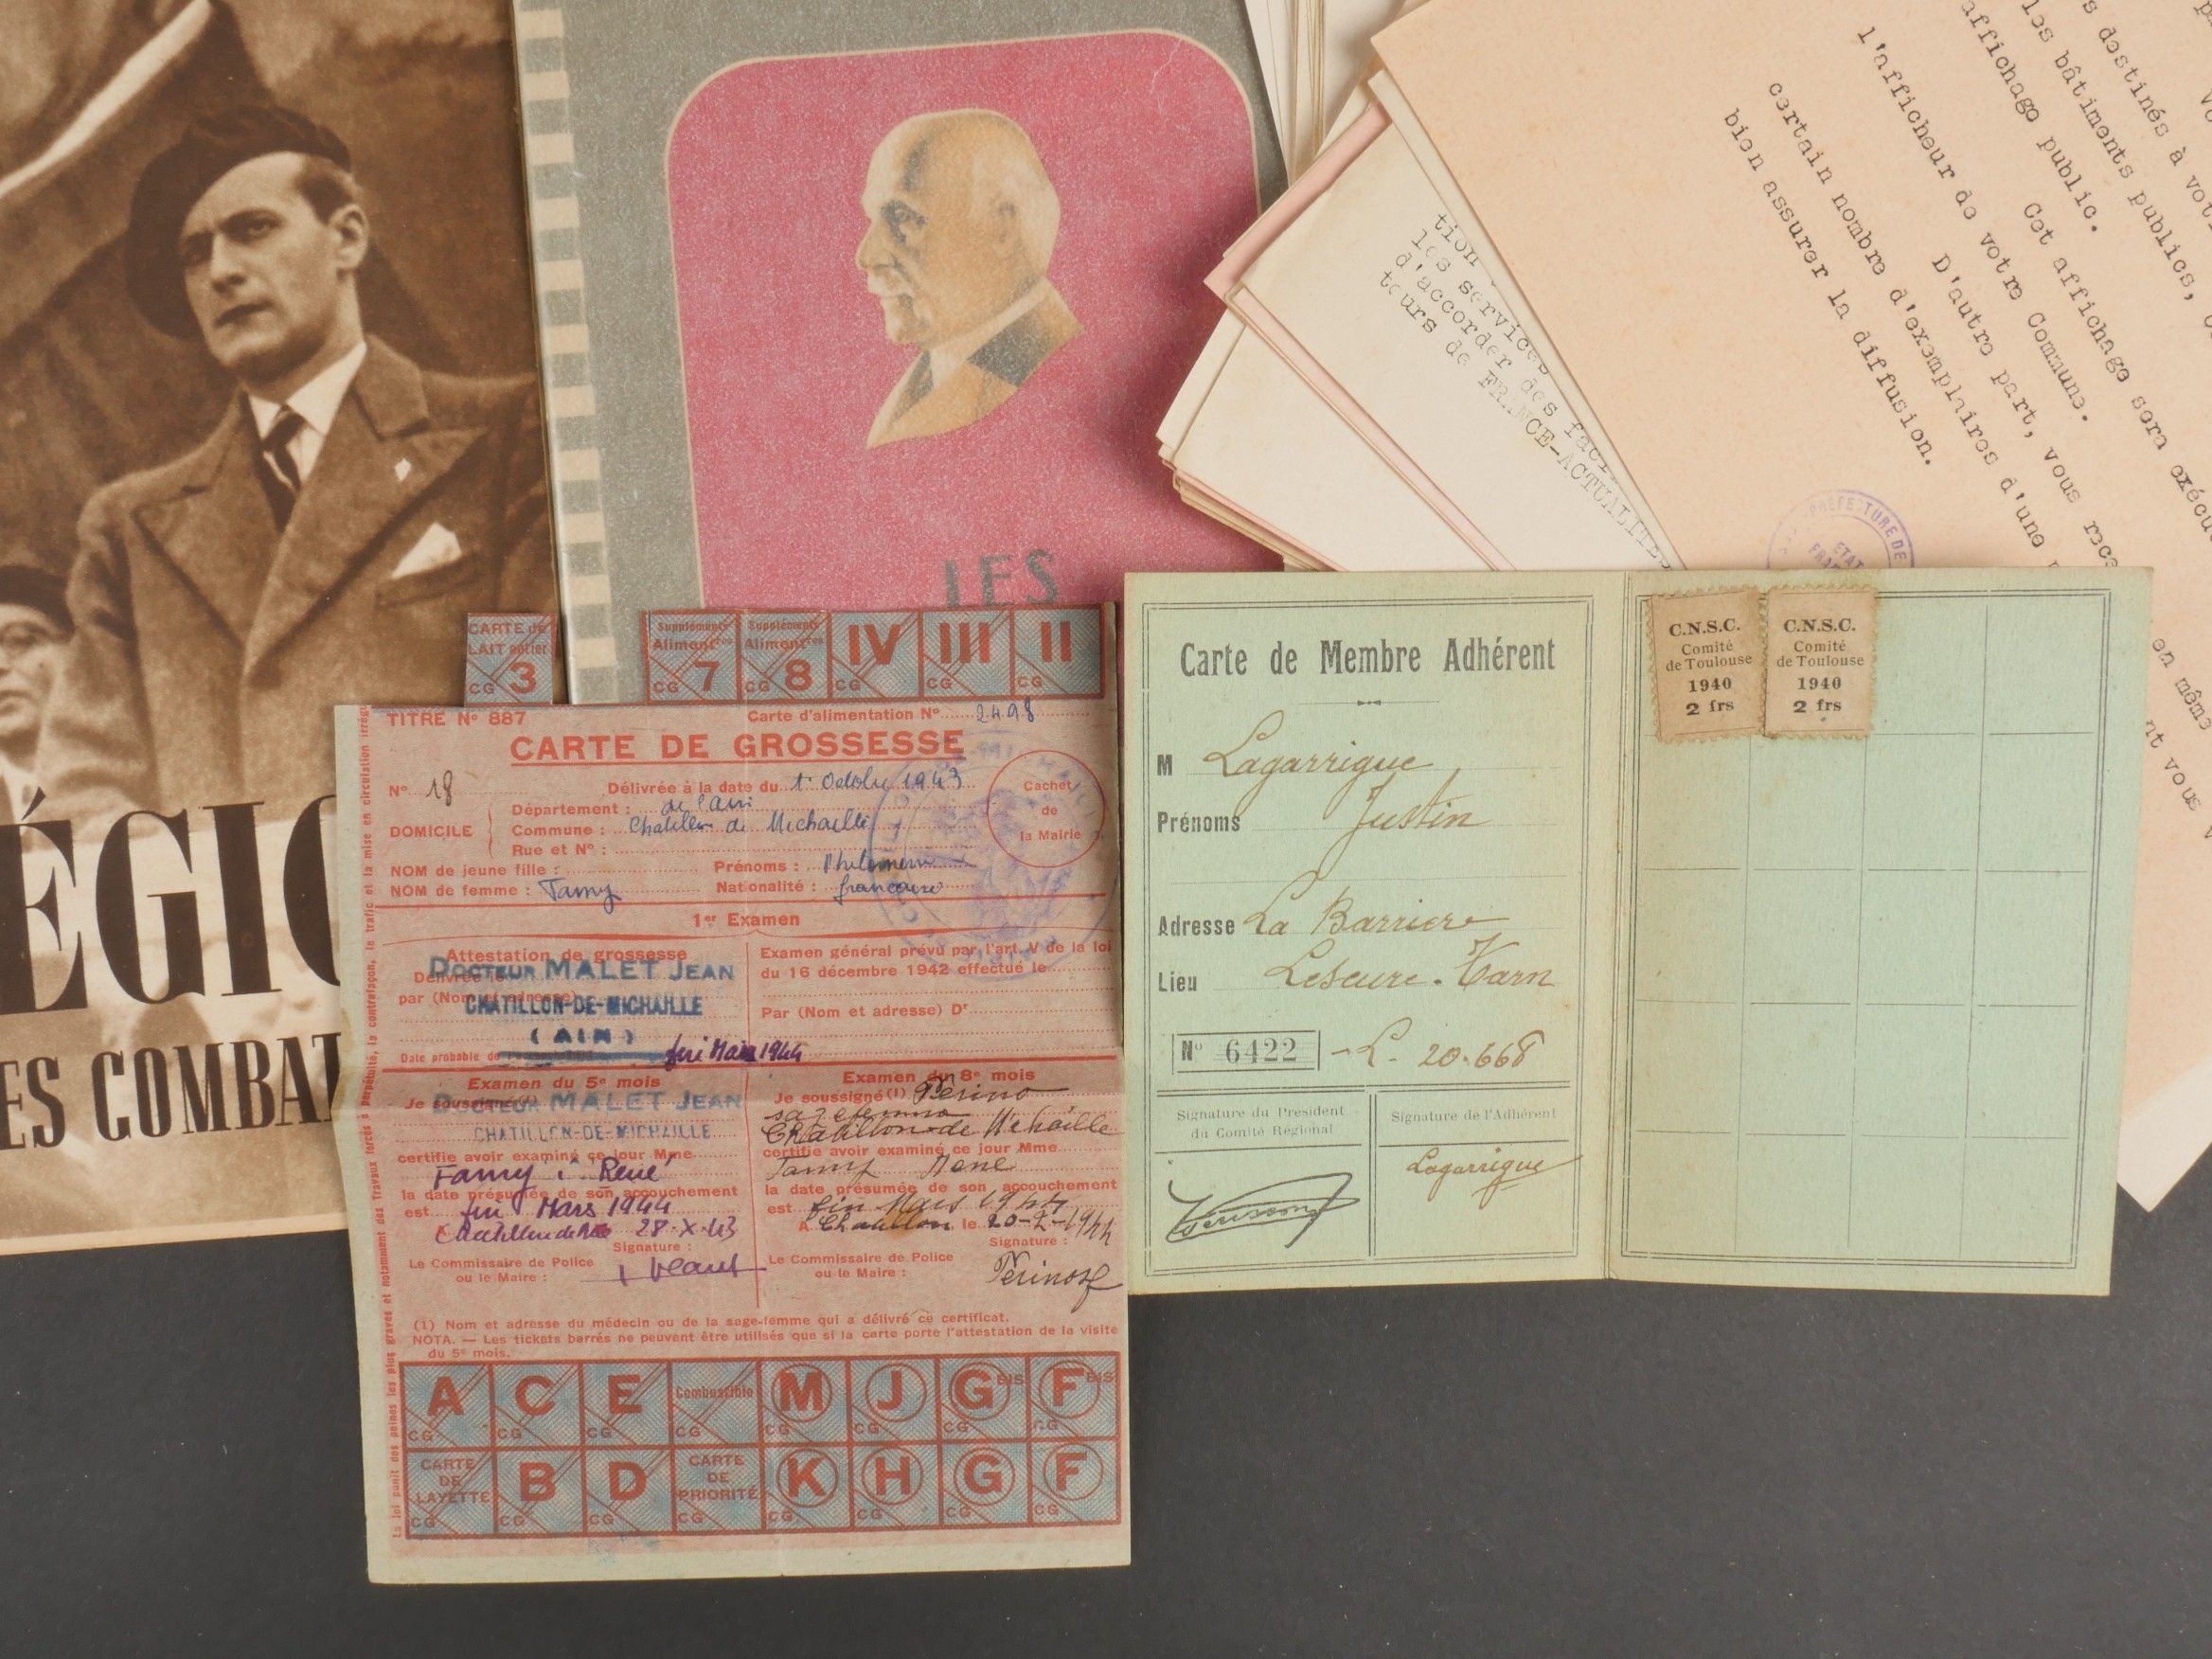 ÉGIO
ES COMBAT
LES
s destinés à vot
les bâtiments publics,
affichage public.
Cet affichage sera exécu
l'afficheur de votre Commune.
D'autre part, vous rece
certain nombre d'exemplaires d'une
bien assurer la diffusion.
en même
nt vous
tion
les services
d'accorder des faci
teurs de FRANCE-ACTUALITES
PREFECTURE DE
ETAT
FRA
CARTE de
LAIT entier
CG 3
Suppléments
Alimentres
CG 7
Suppléments
Alimentres
CG 8
IV
CG
III
CG
II
CG
TITRE No 887
Carte d'alimentation No 2498
CARTE DE GROSSESSE
No 18
Délivrée à la date du 1er Octobre 1943
Cachet
de
la Mairie
DOMICILE
Département : de l'Ain
Commune : Chatillon de Michaille
Rue et No :
NOM de jeune fille :
Prénoms :
NOM de femme : Famy
Nationalité : française
1er Examen
Attestation de grossesse
Délivrée le
par (Nom et adresse)
DOCTEUR MALET JEAN
CHATILLON-DE-MICHAILLE
(AIN)
Date probable de
fin Mars 1944
Examen général prévu par l'art. V de la loi
du 16 décembre 1942 effectué le
Par (Nom et adresse) Dr
Examen du 5e mois
Je soussigné (1)
DOCTEUR MALET JEAN
CHATILLON-DE-MICHAILLE
certifie avoir examiné ce jour Mme
Famy René
la date présumée de son accouchement
est fin Mars 1944
28-X-43
Signature :
Le Commissaire de Police
ou le Maire :
Examen du 8e mois
Je soussigné (1) Perino
sage femme
Chatillon de Michaille
certifie avoir examiné ce jour Mme
Famy René
la date présumée de son accouchement
est fin Mars 1944
A Chatillon, le 20-2-1944
Signature :
Le Commissaire de Police
ou le Maire :
(1) Nom et adresse du médecin ou de la sage-femme qui a délivré ce certificat.
NOTA. — Les tickets barrés ne peuvent être utilisés que si la carte porte l'attestation de la visite
du 5e mois.
A
CG
C
CG
E
CG
Combustible
CG
M
CG
J
CG
G BIS
CG
F BIS
CG
CARTE
DE
LAYETTE
CG
B
CG
D
CG
CARTE
DE
PRIORITÉ
CG
K
CG
H
CG
G
CG
F
CG
La loi punit des peines les plus graves et notamment des Travaux forcés à perpétuité, la contrefaçon, le trafic et la mise en circulation irrégu
Carte de Membre Adhérent
M Lagarrigue
Prénoms Justin
Adresse La Barriere
Lieu Lescure. Tarn
No 6422 - L. 20.668
Signature du Président
du Comité Régional
Signature de l'Adhérent
Lagarrigue
C.N.S.C.
Comité
de Toulouse
1940
2 frs
C.N.S.C.
Comité
de Toulouse
1940
2 frs